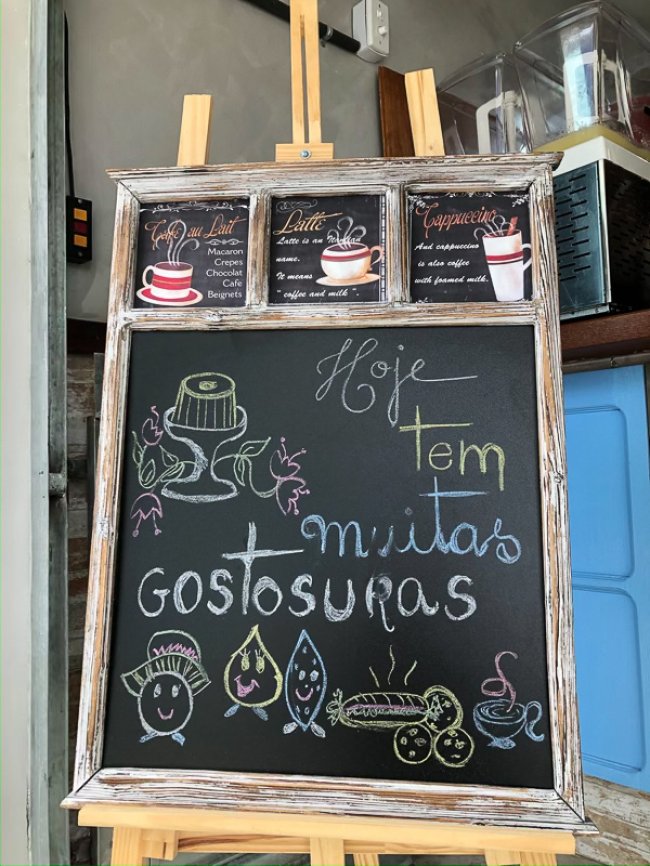 Cafe au Lait
Macaron
Crepes
Chocolat
Cafe
Beignets
Latte
Latte is an Italian
name.
It means
"coffee and milk"
Cappuccino
And cappuccino
is also coffee
with foamed milk.
Hoje
tem
muitas
GOSTOSURAS